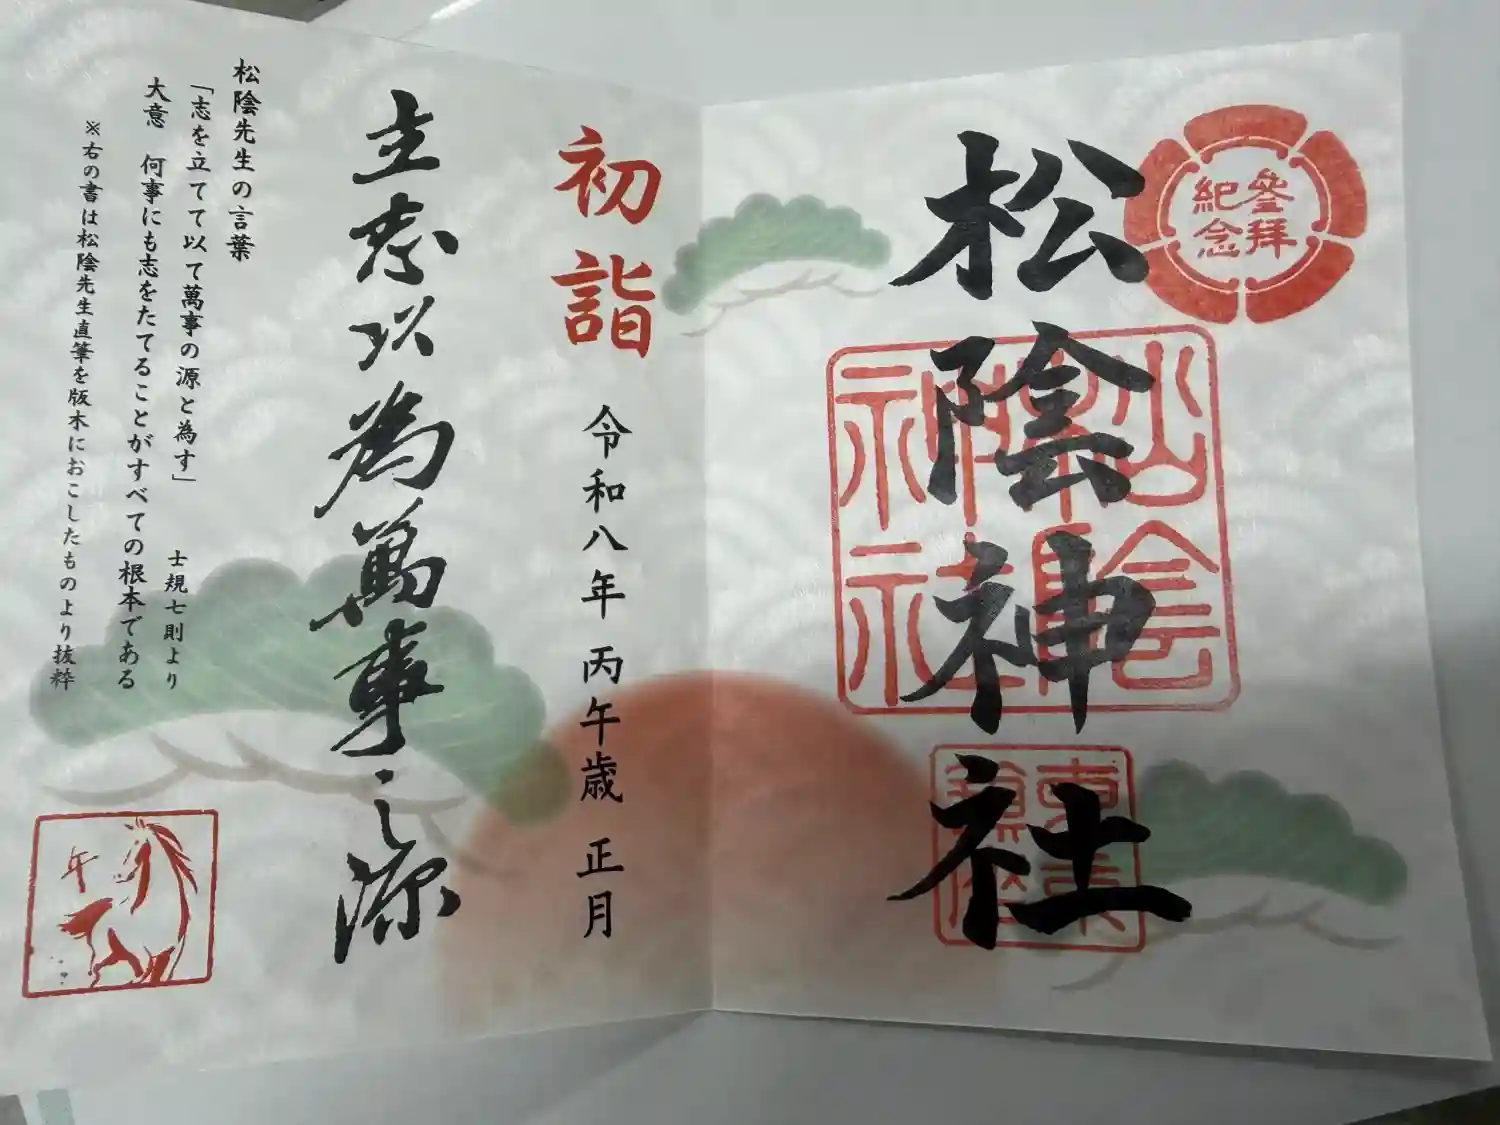 参拝
紀念
松陰神社
松陰
神社
初詣
令和八年 丙午歳 正月
立志以為萬事之源
松陰先生の言葉
「志を立てて以て萬事の源と為す」
士規七則より
大意 何事にも志をたてることがすべての根本である
※右の書は松陰先生直筆を版木におこしたものより抜粋
午